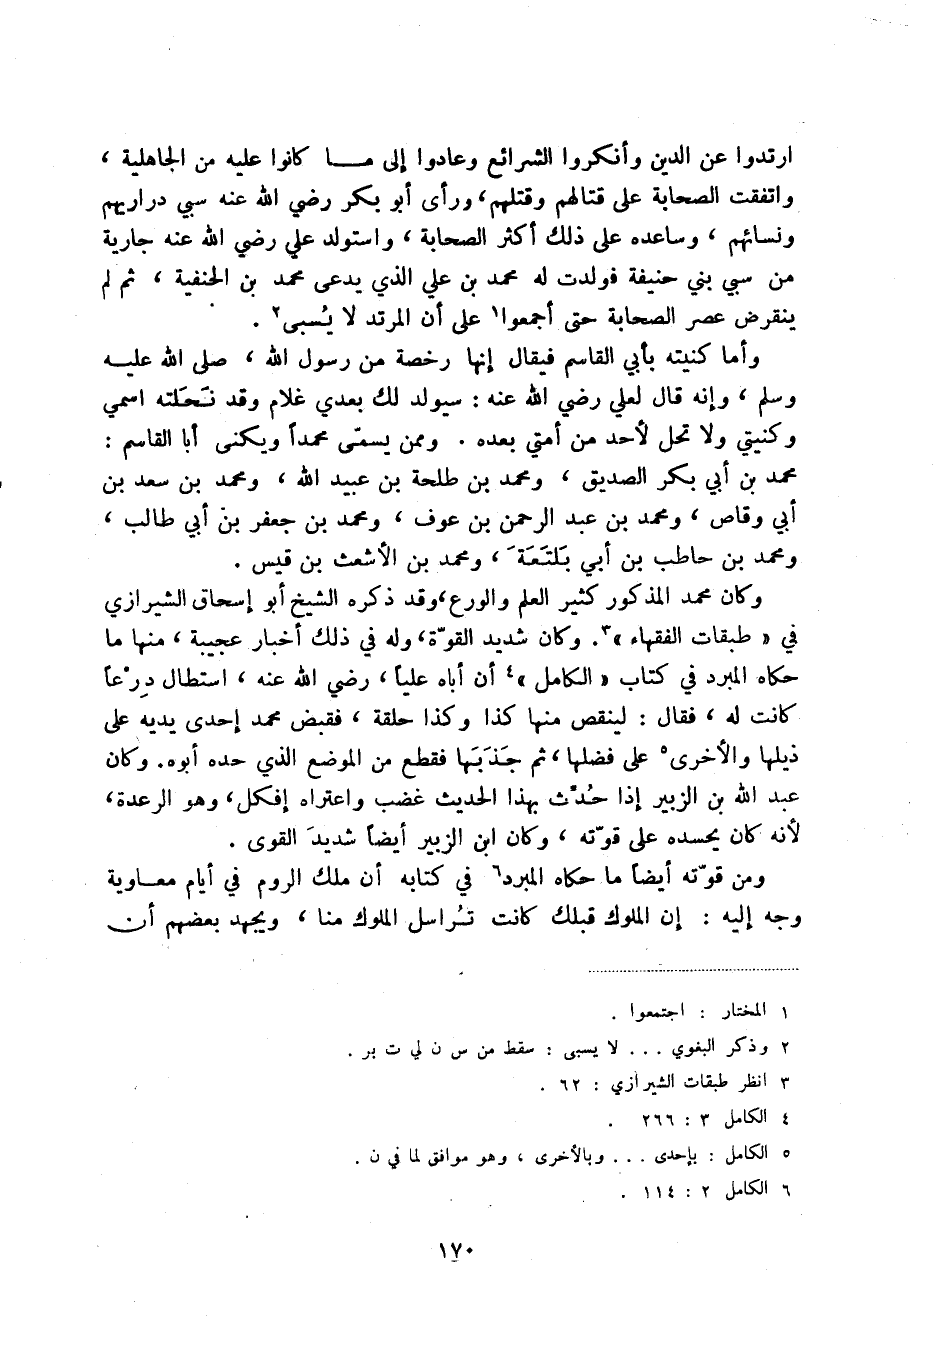 ارتدوا عن الدين وأنكروا الشرائع وعادوا إلى مـا كانوا عليه من الجاهلية ،
واتفقت الصحابة على قتالهم وقتلهم ، ورأى أبو بكر رضي الله عنه سبي دراريهم
ونسائهم ، وساعده على ذلك أكثر الصحابة ، واستولد علي رضي الله عنه جارية
من سبي بني حنيفة فولدت له محمد بن علي الذي يدعى محمد بن الحنفية ، ثم لم
ينقرض عصر الصحابة حتى أجمعوا١ على أن المرتد لا يُسبى٢ .
وأما كنيته بأبي القاسم فيقال إنها رخصة من رسول الله ، صلى الله عليـه
وسلم ، وإنه قال لعلي رضي الله عنه : سيولد لك بعدي غلام وقد نَحَلته اسمي
وكنيتي ولا تحل لأحد من أمتي بعده . وممن يسمّى محمداً ويكنى أبا القاسم :
محمد بن أبي بكر الصديق ، ومحمد بن طلحة بن عبيد الله ، ومحمد بن سعد بن
أبي وقاص ، ومحمد بن عبد الرحمن بن عوف ، ومحمد بن جعفر بن أبي طالب ،
ومحمد بن حاطب بن أبي بَلتَعَةَ ، ومحمد بن الأشعث بن قيس .
وكان محمد المذكور كثير العلم والورع، وقد ذكره الشيخ أبو إسحاق الشيرازي
في « طبقات الفقهاء »٣. وكان شديد القوّة، وله في ذلك أخبار عجيبة ، منها ما
حكاه المبرد في كتاب « الكامل »٤ أن أباه علياً ، رضي الله عنه ، استطال دِرْعاً
كانت له ، فقال : لينقص منها كذا وكذا حلقة ، فقبض محمد إحدى يديه على
ذيلها والأخرى٥ على فضلها ، ثم جَذَبَها فقطع من الموضع الذي حده أبوه. وكان
عبد الله بن الزبير إذا حُدّث بهذا الحديث غضب واعتراه إفكل، وهو الرعدة،
لأنه كان يحسده على قوّته ، وكان ابن الزبير أيضاً شديدَ القوى .
ومن قوّته أيضاً ما حكاه المبرد٦ في كتابه أن ملك الروم في أيام معـاوية
وجه إليه : إن الملوك قبلك كانت تُراسل الملوك منا ، ويجهد بعضهم أن
١ المختار : اجتمعوا .
٢ وذكر البغوي ... لا يسبى : سقط من س ن لي ت بر .
٣ انظر طبقات الشيرازي : ٦٢ .
٤ الكامل ٣ : ٢٦٦ .
٥ الكامل : بإحدى ... وبالأخرى ، وهو موافق لما في ن .
٦ الكامل ٢ : ١١٤ .
١٧٠